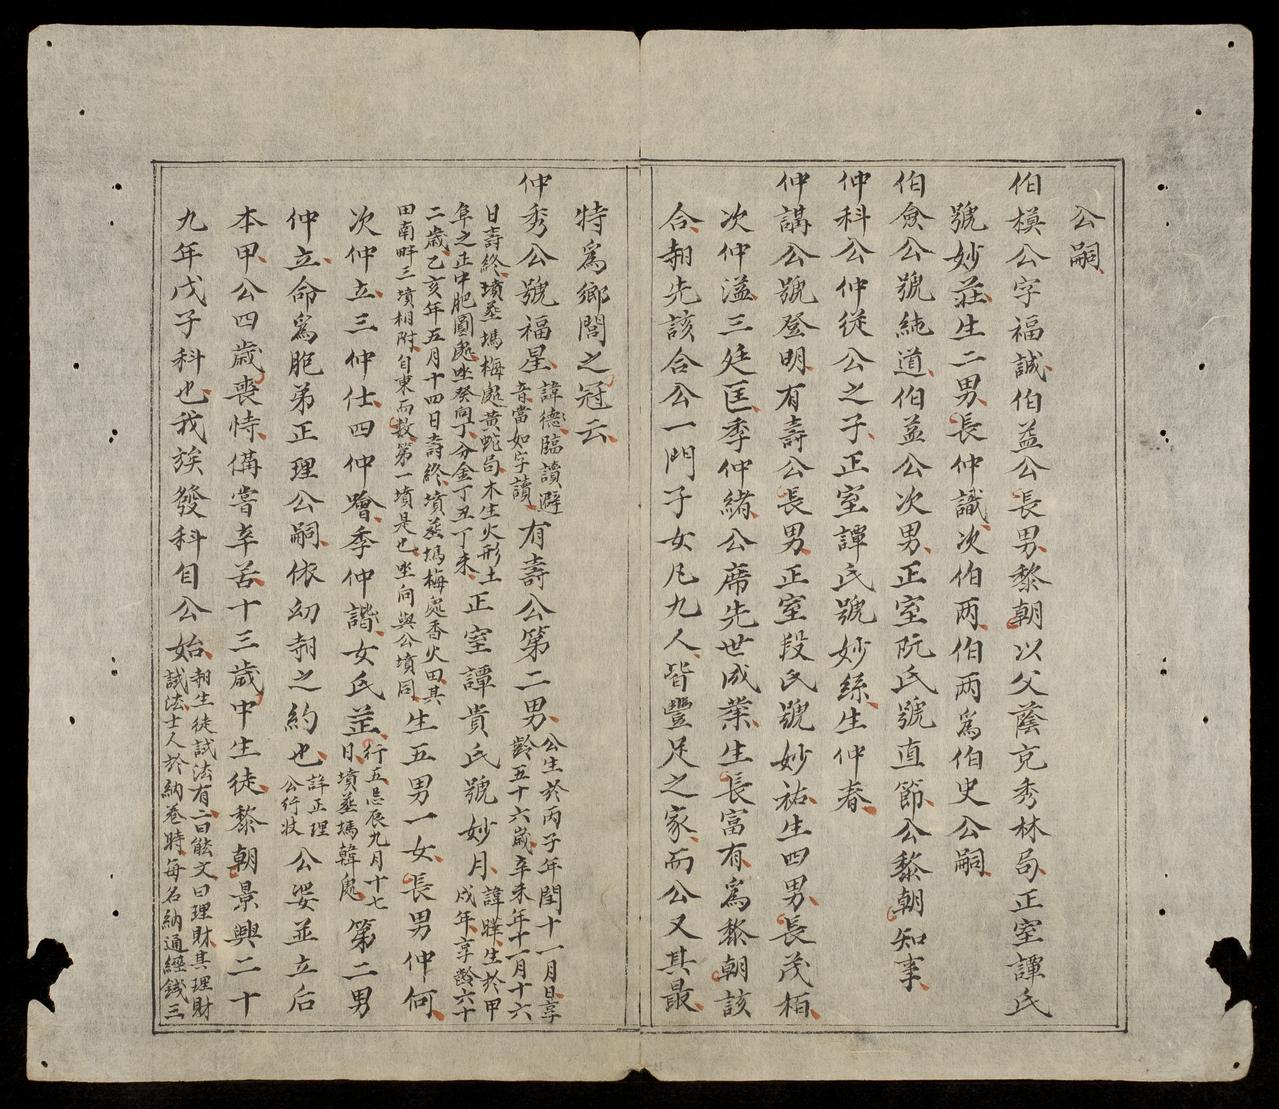 公嗣
伯模公字福誠伯益公長男黎朝以父蔭充秀林局正室譚氏
號妙莊生二男長仲識次伯两伯两爲伯史公嗣
伯僉公號純道伯益公次男正室阮氏號直節公黎朝知事
仲科公仲従公之子正室譚氏號妙絲生仲春
仲講公號登明有壽公長男正室段氏號妙祐生四男長茂栢
次仲溢三廷匡季仲緒公席先世成業生長富有爲黎朝該
合朝先該合公一門子女凡九人皆豐足之家而公又其最
特爲鄉閭之冠云
仲秀公號福星諱德臨讀避音當如字讀有壽公第二男公生於丙子年閏十一月日享齡五十六歲辛未年十一月十六
日壽終墳葬塢梅處黄蛇局木生火形土阜之正中肥圓處坐癸向丁分金丁丑丁未正室譚貴氏號妙月諱曄生於甲戌年享齡六十
二歲乙亥年五月十四日壽終墳葬塢梅處香火田其田南畔三墳相附自東而数第一墳是也坐向與公墳同生五男一女長男仲何
次仲立三仲仕四仲噲季仲諧女氏並行五忌辰九月十七日墳葬塢韓處第二男
仲立命爲胞弟正理公嗣依幼朝之約也詳正理公行狀公娶並立后
本甲公四歲喪恃備嘗辛苦十三歲中生徒黎朝景興二十
九年戊子科也我族發科自公始朝生徒試法有二曰能文曰理財其理財試法士人於納卷時每名納通經錢三